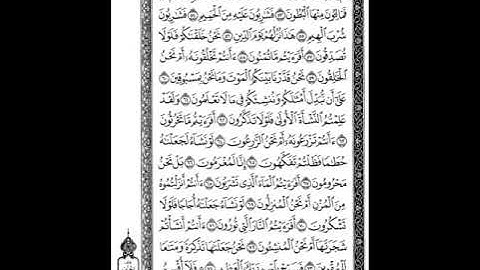 فَمَالِـُٔونَ مِنْهَا ٱلْبُطُونَ ٥٣ فَشَٰرِبُونَ عَلَيْهِ مِنَ ٱلْحَمِيمِ ٥٤ فَشَٰرِبُونَ
شُرْبَ ٱلْهِيمِ ٥٥ هَٰذَا نُزُلُهُمْ يَوْمَ ٱلدِّينِ ٥٦ نَحْنُ خَلَقْنَٰكُمْ فَلَوْلَا
تُصَدِّقُونَ ٥٧ أَفَرَءَيْتُم مَّا تُمْنُونَ ٥٨ ءَأَنتُمْ تَخْلُقُونَهُۥٓ أَمْ نَحْنُ
ٱلْخَٰلِقُونَ ٥٩ نَحْنُ قَدَّرْنَا بَيْنَكُمُ ٱلْمَوْتَ وَمَا نَحْنُ بِمَسْبُوقِينَ ٦٠
عَلَىٰٓ أَن نُّبَدِّلَ أَمْثَٰلَكُمْ وَنُنشِئَكُمْ فِى مَا لَا تَعْلَمُونَ ٦١ وَلَقَدْ
عَلِمْتُمُ ٱلنَّشْأَةَ ٱلْأُولَىٰ فَلَوْلَا تَذَكَّرُونَ ٦٢ أَفَرَءَيْتُم مَّا تَحْرُثُونَ
٦٣ ءَأَنتُمْ تَزْرَعُونَهُۥٓ أَمْ نَحْنُ ٱلزَّٰرِعُونَ ٦٤ لَوْ نَشَآءُ لَجَعَلْنَٰهُ
حُطَٰمًا فَظَلْتُمْ تَفَكَّهُونَ ٦٥ إِنَّا لَمُغْرَمُونَ ٦٦ بَلْ نَحْنُ
مَحْرُومُونَ ٦٧ أَفَرَءَيْتُمُ ٱلْمَآءَ ٱلَّذِى تَشْرَبُونَ ٦٨ ءَأَنتُمْ أَنزَلْتُمُوهُ
مِنَ ٱلْمُزْنِ أَمْ نَحْنُ ٱلْمُنزِلُونَ ٦٩ لَوْ نَشَآءُ جَعَلْنَٰهُ أُجَاجًا فَلَوْلَا
تَشْكُرُونَ ٧٠ أَفَرَءَيْتُمُ ٱلنَّارَ ٱلَّتِى تُورُونَ ٧١ ءَأَنتُمْ أَنشَأْتُمْ
شَجَرَتَهَآ أَمْ نَحْنُ ٱلْمُنشِـُٔونَ ٧٢ نَحْنُ جَعَلْنَٰهَا تَذْكِرَةً وَمَتَٰعًا
لِّلْمُقْوِينَ ٧٣ فَسَبِّحْ بِٱسْمِ رَبِّكَ ٱلْعَظِيمِ ٧٤ فَلَآ أُقْسِمُ